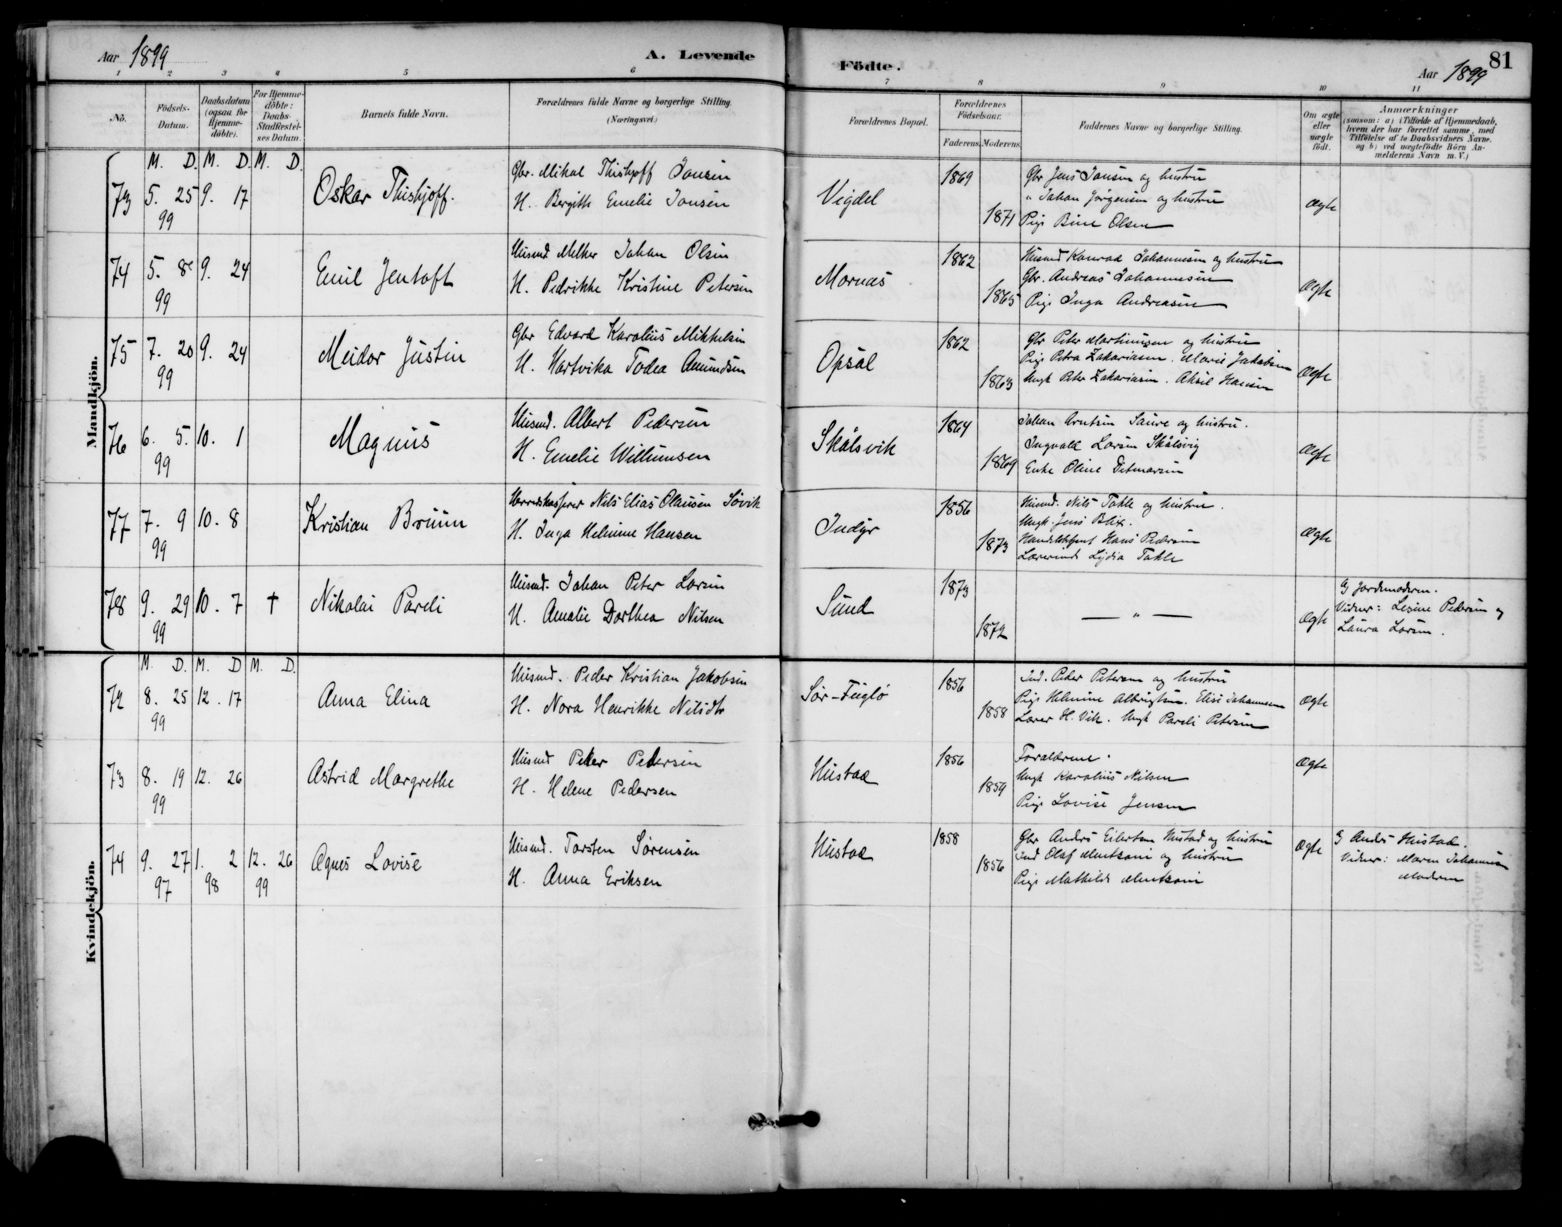 Aar 1899
A. Levende
Födte.
Aar 1899
81
1 2 3 4 5 6 7 8 9 10 11
No.
Födsels-Datum.
Daabsdatum (ogsaa for Hjemmedöbte).
For Hjemmedöbte: Daabs-Stadfæstelses Datum.
Barnets fulde Navn.
Forældrenes fulde Navne og borgerlige Stilling. (Næringsvei)
Forældrenes Bopæl.
Forældrenes Födselsaar.
Faderens. Moderens.
Faddernes Navne og borgerlige Stilling.
Om ægte eller uægte födt.
Anmærkninger
(saasom: a) (Tilfælde af Hjemmedaab, hvem der har forrettet samme, med Tilföielse af to Daabsvidners Navne. og b) ved uægtefödte Börn Anmelderens Navn m. V.)
Mandkjön.
M. D. M. D. M. D.
73 5. 25 99 9. 17
Oskar Thishjoff.
Gbr. Mikal Thishjoff Jonsen
H. Bergith Emelie Jonsen
Vigdel
1869
1871
Gbr Jens Jonsen og hustru
" Johan Jørgensen og hustru
Pige Bine Olsen
Ægte
74 5. 8 99 9. 24
Emil Jentoft
Huusmd Melker Johan Olsen
H. Pedrikke Kristine Petersen
Mornæs
1862
1865
Husmd Konrad Johannesen og hustru
Gbr. Andreas Johannesen
Pige Inga Andreasen
Ægte
75 7. 20 99 9. 24
Meidor Justin
Gbr Edvard Karolius Mikkelsen
H. Hartvika Todea Amundsen
Opsal
1862
1863
Gbr Peter Martinusen og hustru
Pige Petra Zakariasen. Marie Jakobsen
Ungk Peter Zakariasen. Aksel Hansen
Ægte
76 6. 5. 99 10. 1
Magnus
Huusmd. Albert Pedersen
H. Emelie Willumsen
Skålsvik
1864
1869
Johan Arntsen Saure og hustru.
Ingvald Larsen Skålsvig
Enke Oline Ditmarsen
Ægte
77 7. 9 99 10. 8
Kristian Bruun
Herredskasserer Nils Elias Olausen Søvik
H. Inga Helmine Hansen
Indyr
1856
1873
Husmd. Nils Takle og hustru.
Ungk. Jens Blix.
Handelsbetj Hans Pedersen
Lærerinde Lydia Takle
Ægte
78 9. 29 99 10. 7 †
Nikolai Pareli
Huusmd. Johan Peter Larsen
H. Amalie Dorthea Nilsen
Sund
1873
1872
— " —
Ægte
G Jordmoderen.
Vidner: Lesine Pedersen og
Laura Larsen.
Kvindekjön.
M. D. M. D M. D.
72 8. 25 99 12. 17
Anna Elina
Huusmd. Peder Kristian Jakobsen
H. Nora Henrikke Nilsdtr
Sør-Fuglø
1856
1858
Ind. Peter Petersen og hustru
Pige Helmine Albrigtsen. Elise Johannesen
Lærer H. Vik. Ungk Pareli Petersen
Ægte
73 8. 19 99 12. 26
Astrid Margrethe
Huusmd Peder Pedersen
H. Helene Pedersen
Hustad
1856
1859
Forældrene.
Ungk Karolius Nilsen
Pige Lovise Jensen
Ægte
74 9. 27 97 1. 2 98 12. 26 99
Agnes Lovise
Huusmd. Torsten Sørensen
H. Anna Eriksen
Hustad
1858
1856
Gbr Anders Eilertsen Hustad og hustru
Ind Olaf Mentsoni og hustru
Pige Mathilde Mentsoni
Ægte
G Anders Hustad.
Vidner: Maren Johannesen
Moderen